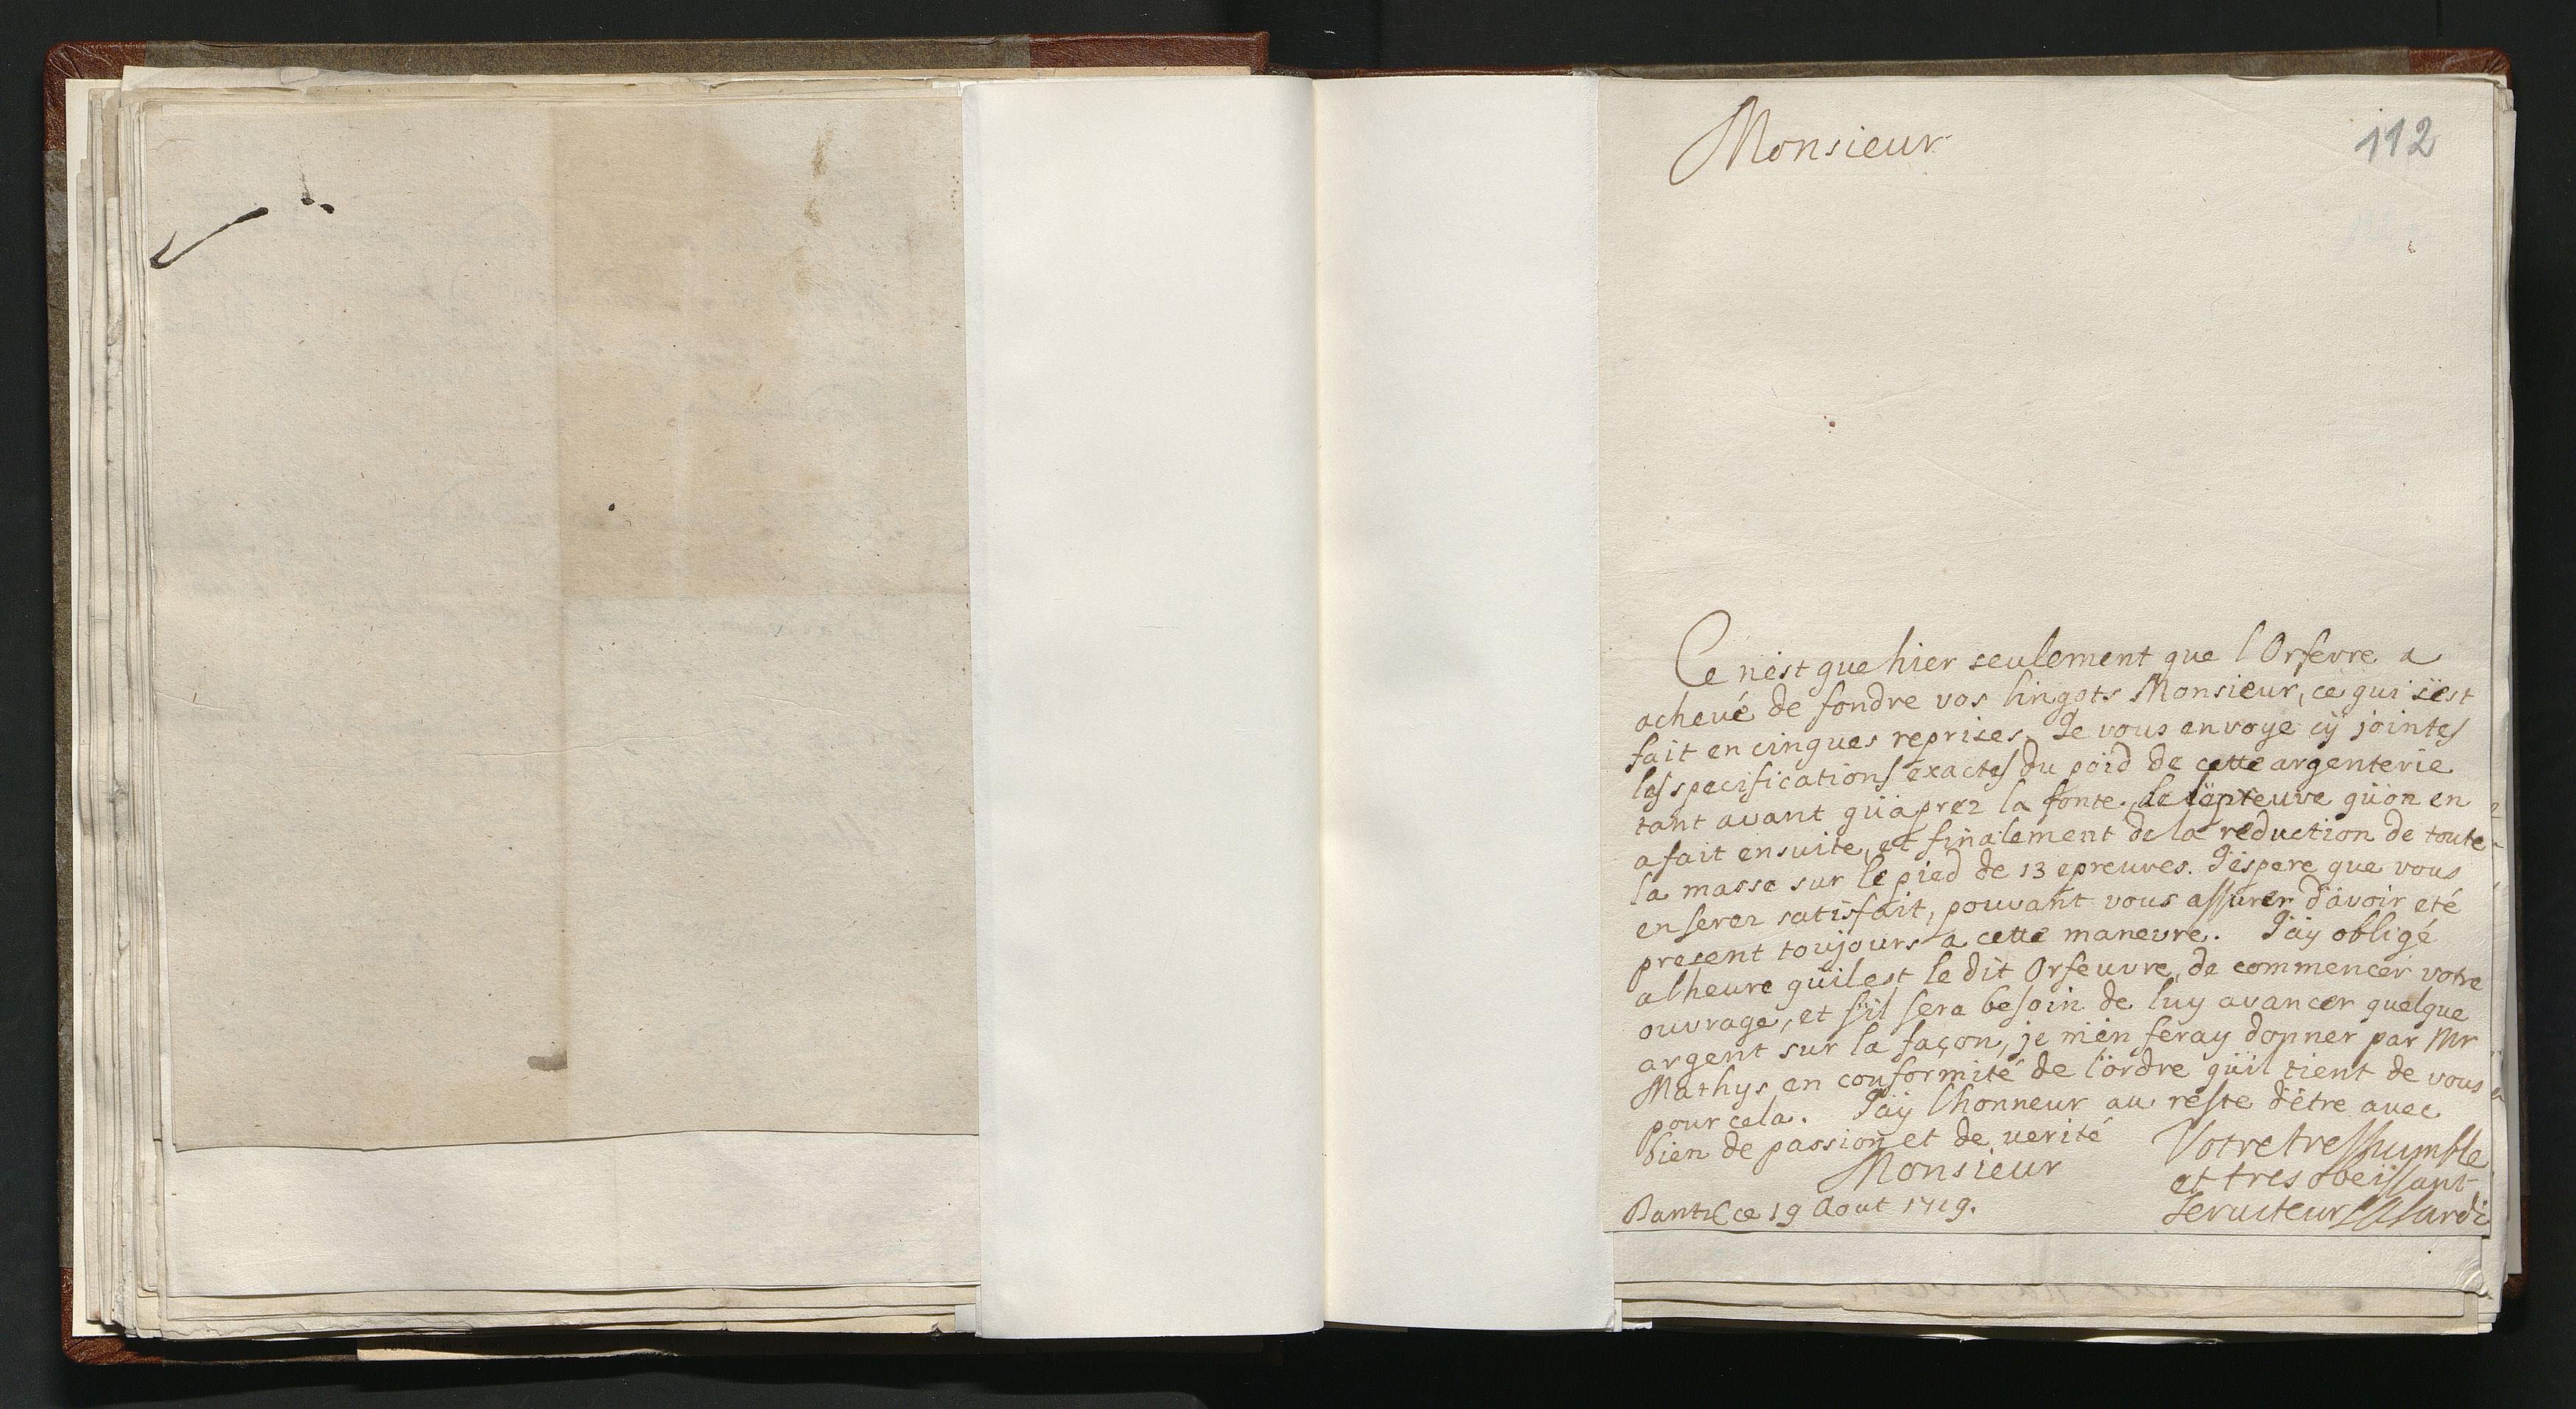 112
Monsieur
Ce n'est que hier seulement que l'Orfevre a
achevé de fondre vos lingots Monsieur, ce qui s'est
fait en cinques reprises. Je vous envoye cÿ jointes
les specifications exactes du poid de cette argenterie
tant avant qu'aprez la fonte, de l'epreuve qu'on en
a fait ensuite, et finalement de la reduction de toute
la masse sur le pied de 13 epreuves. J'espere que vous
en serez satisfait, pouvant vous assurer d'avoir eté
present toujours a cette manevre. J'ay obligé
a lheure qu'il est le dit Orfeuvre, de commencer votre
ouvrage, et s'il sera besoin de luy avancer quelque
argent sur la façon, je m'en feray donner par Mr
Mathys en conformité de l'ordre qu'il tient de vous
pour cela. J'ay lhonneur au reste d'être avec
bien de passion et de verité
Monsieur
Votre tres humble
et tres obeissant
Serviteur
ce 19 Aout 1719.